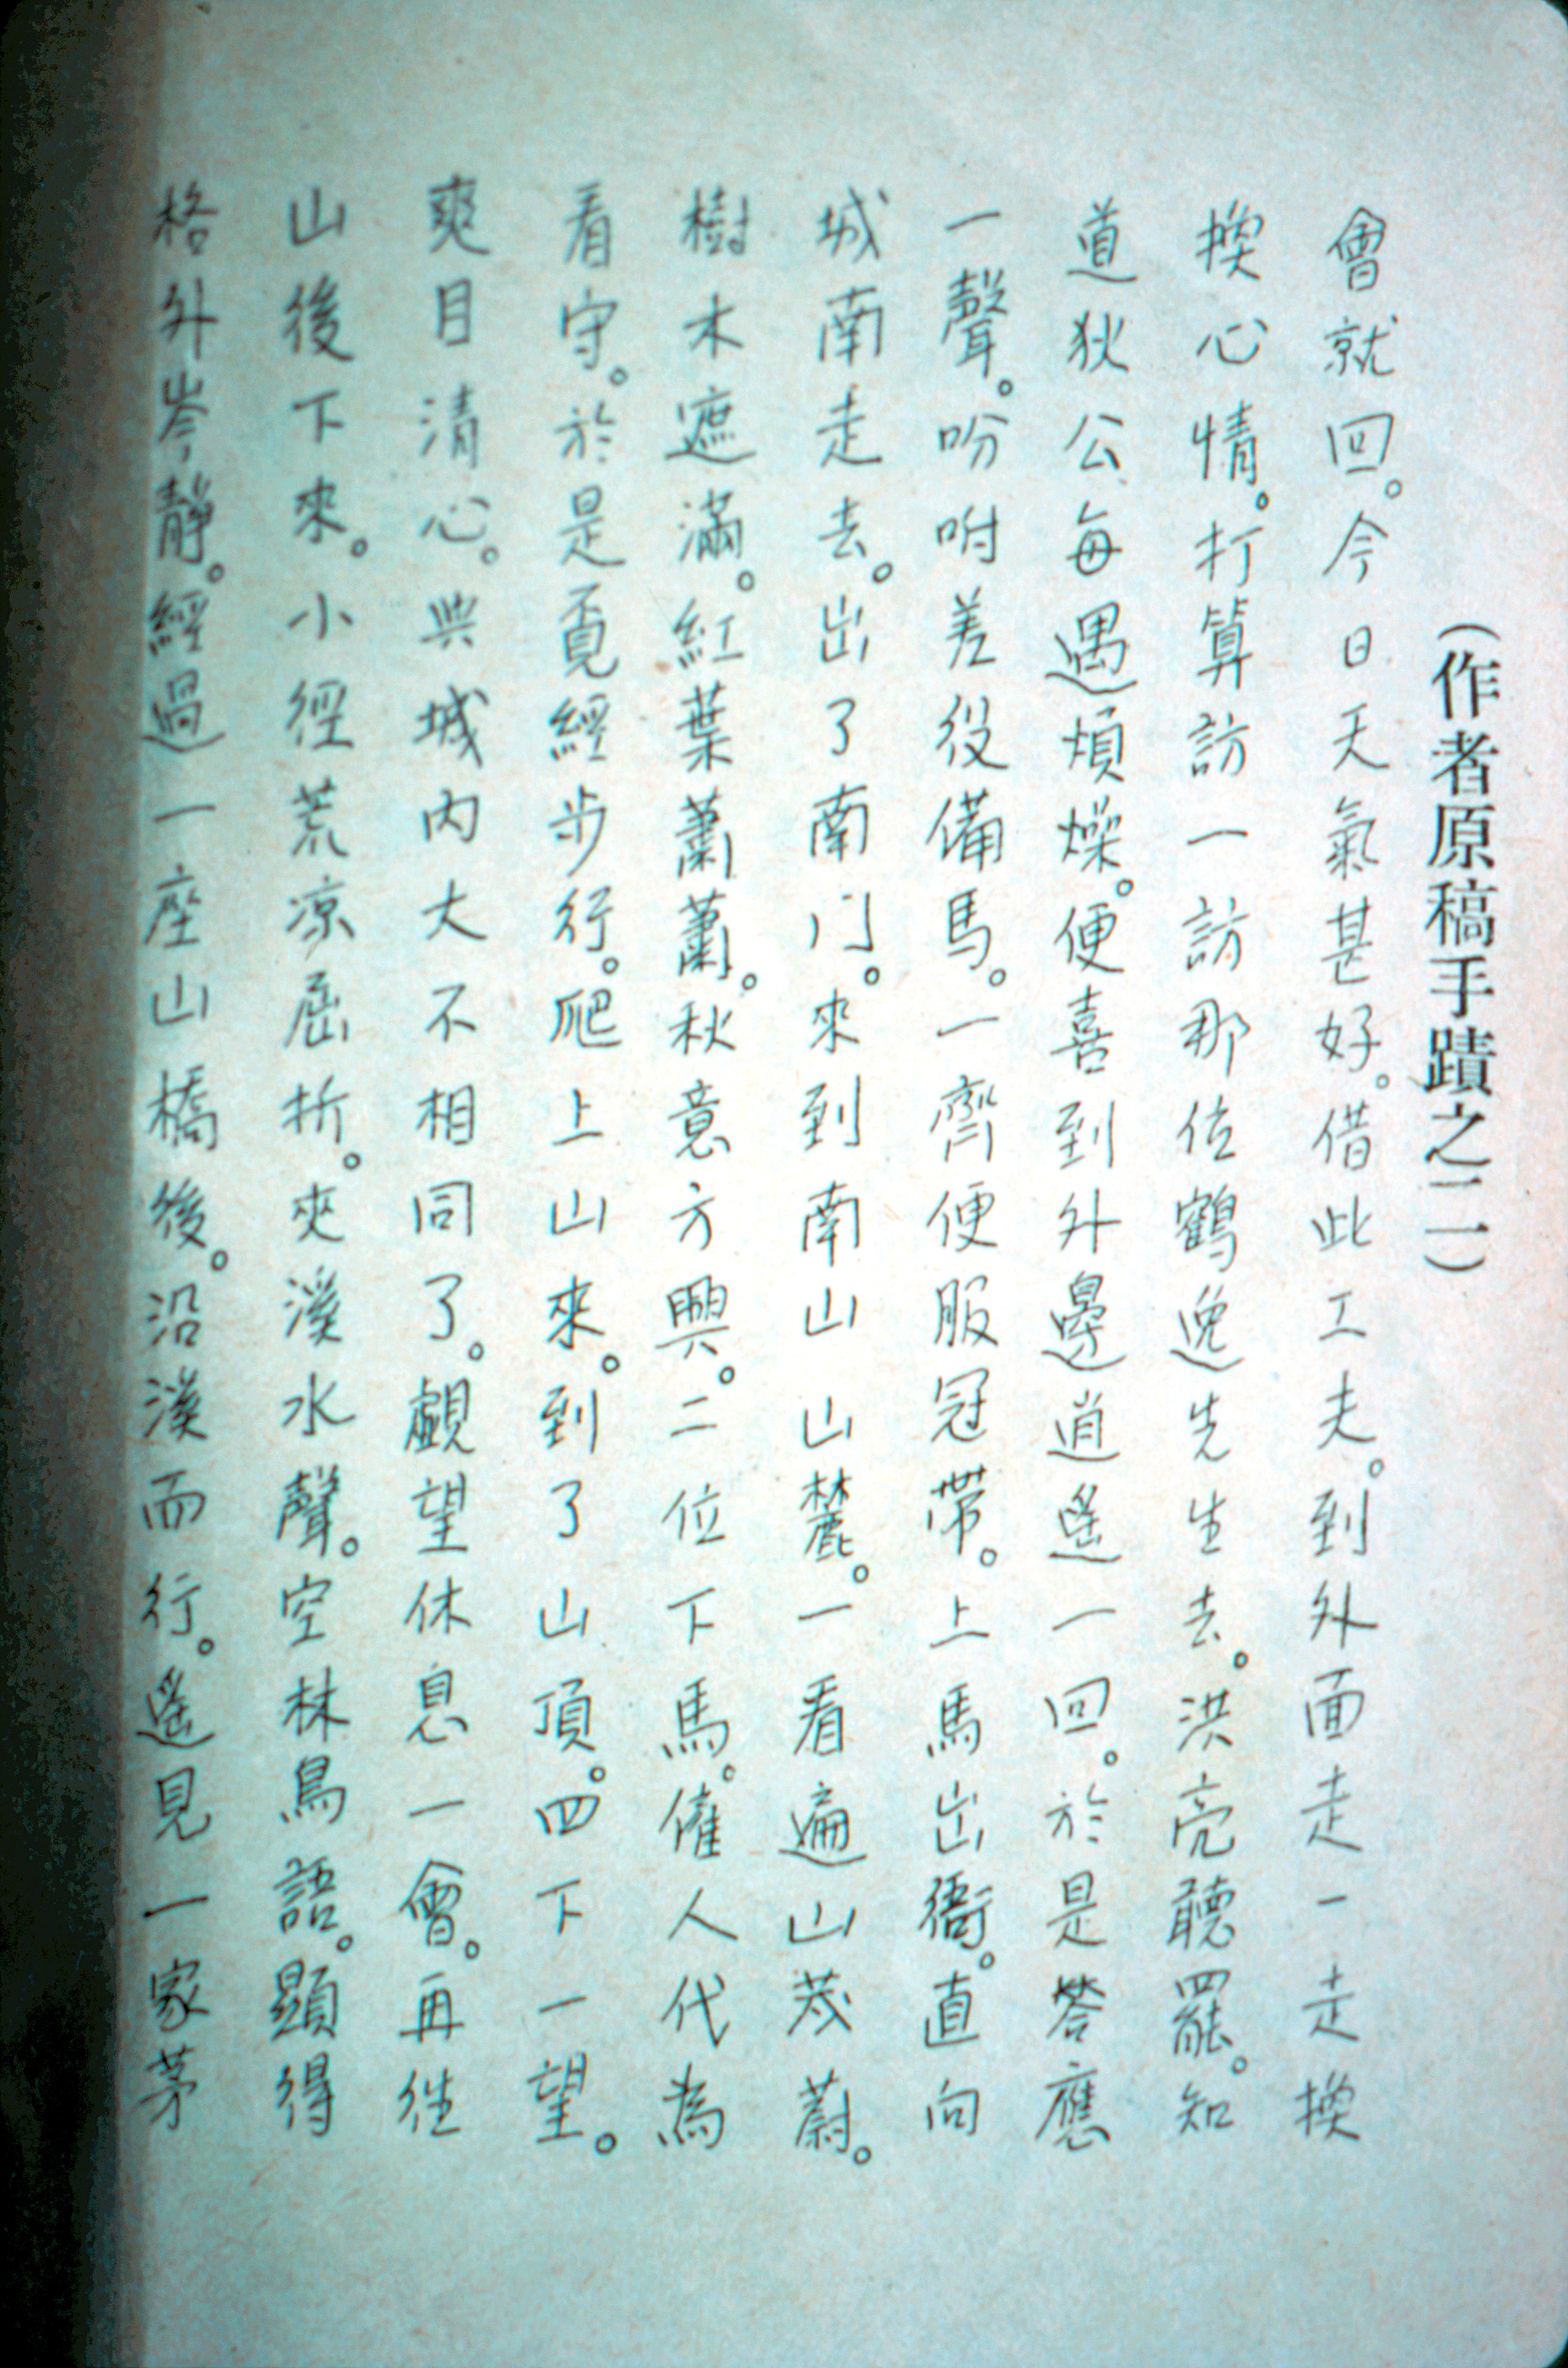 （作者原稿手蹟之二）
會就回。今日天氣甚好。借此工夫。到外面走一走換
換心情。打算訪一訪那位鶴逸先生去。洪亮聽罷。知
道狄公每遇煩燥。便喜到外邊逍遙一回。於是答應
一聲。吩咐差役備馬。一齊便服冠帶。上馬出衙。直向
城南走去。出了南门。來到南山山麓。一看遍山茂蔚。
樹木遮滿。紅葉蕭蕭。秋意方興。二位下馬。僱人代為
看守。於是覓經步行。爬上山來。到了山頂。四下一望。
爽目清心。與城內大不相同了。覷望休息一會。再往
山後下來。小徑荒凉屈折。夾溪水聲。空林鳥語。顯得
格外岑靜。經過一座山橋後。沿溪而行。遙見一家茅